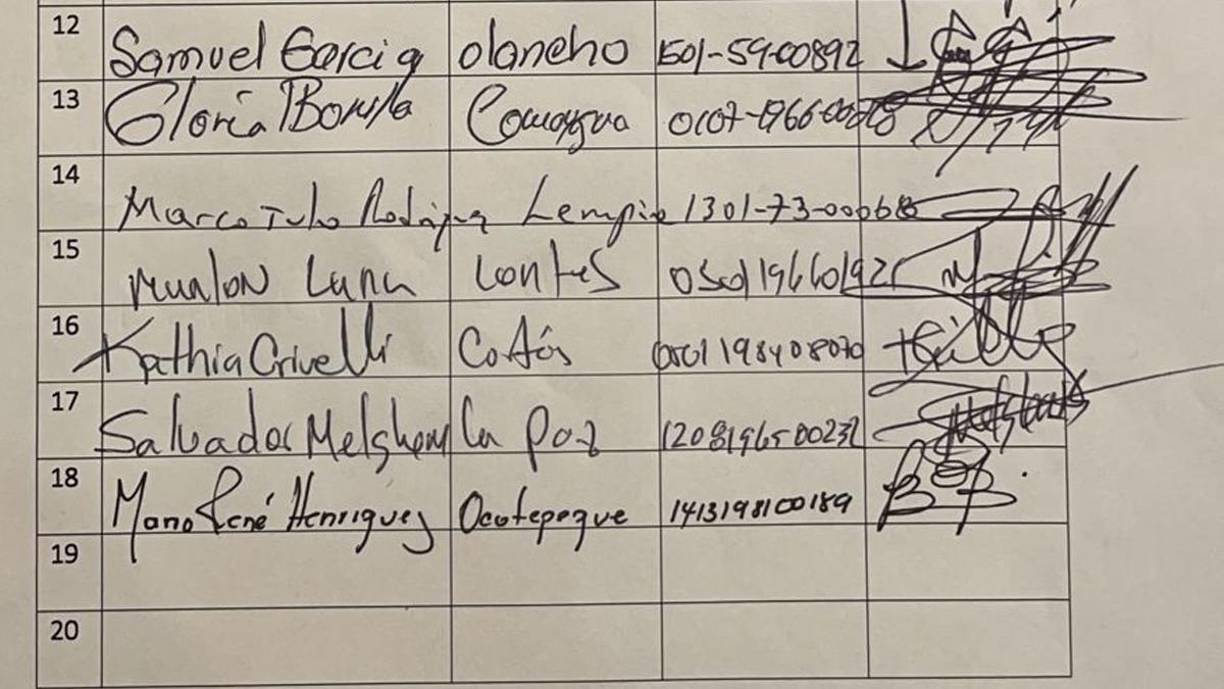 12 Samuel Garcia olancho 1501-59-00892
13 Gloria Bonilla Comayagua
14 Marco Tulio Rodríguez Lempira 1301-73-000686
15 Marlon Lara Cortes
16 Kathia Crivelli Cortés
17 Salvador Melghem La Paz 1208196500232
18 Mario René Henriquez Ocotepeque 1413198100189
19
20